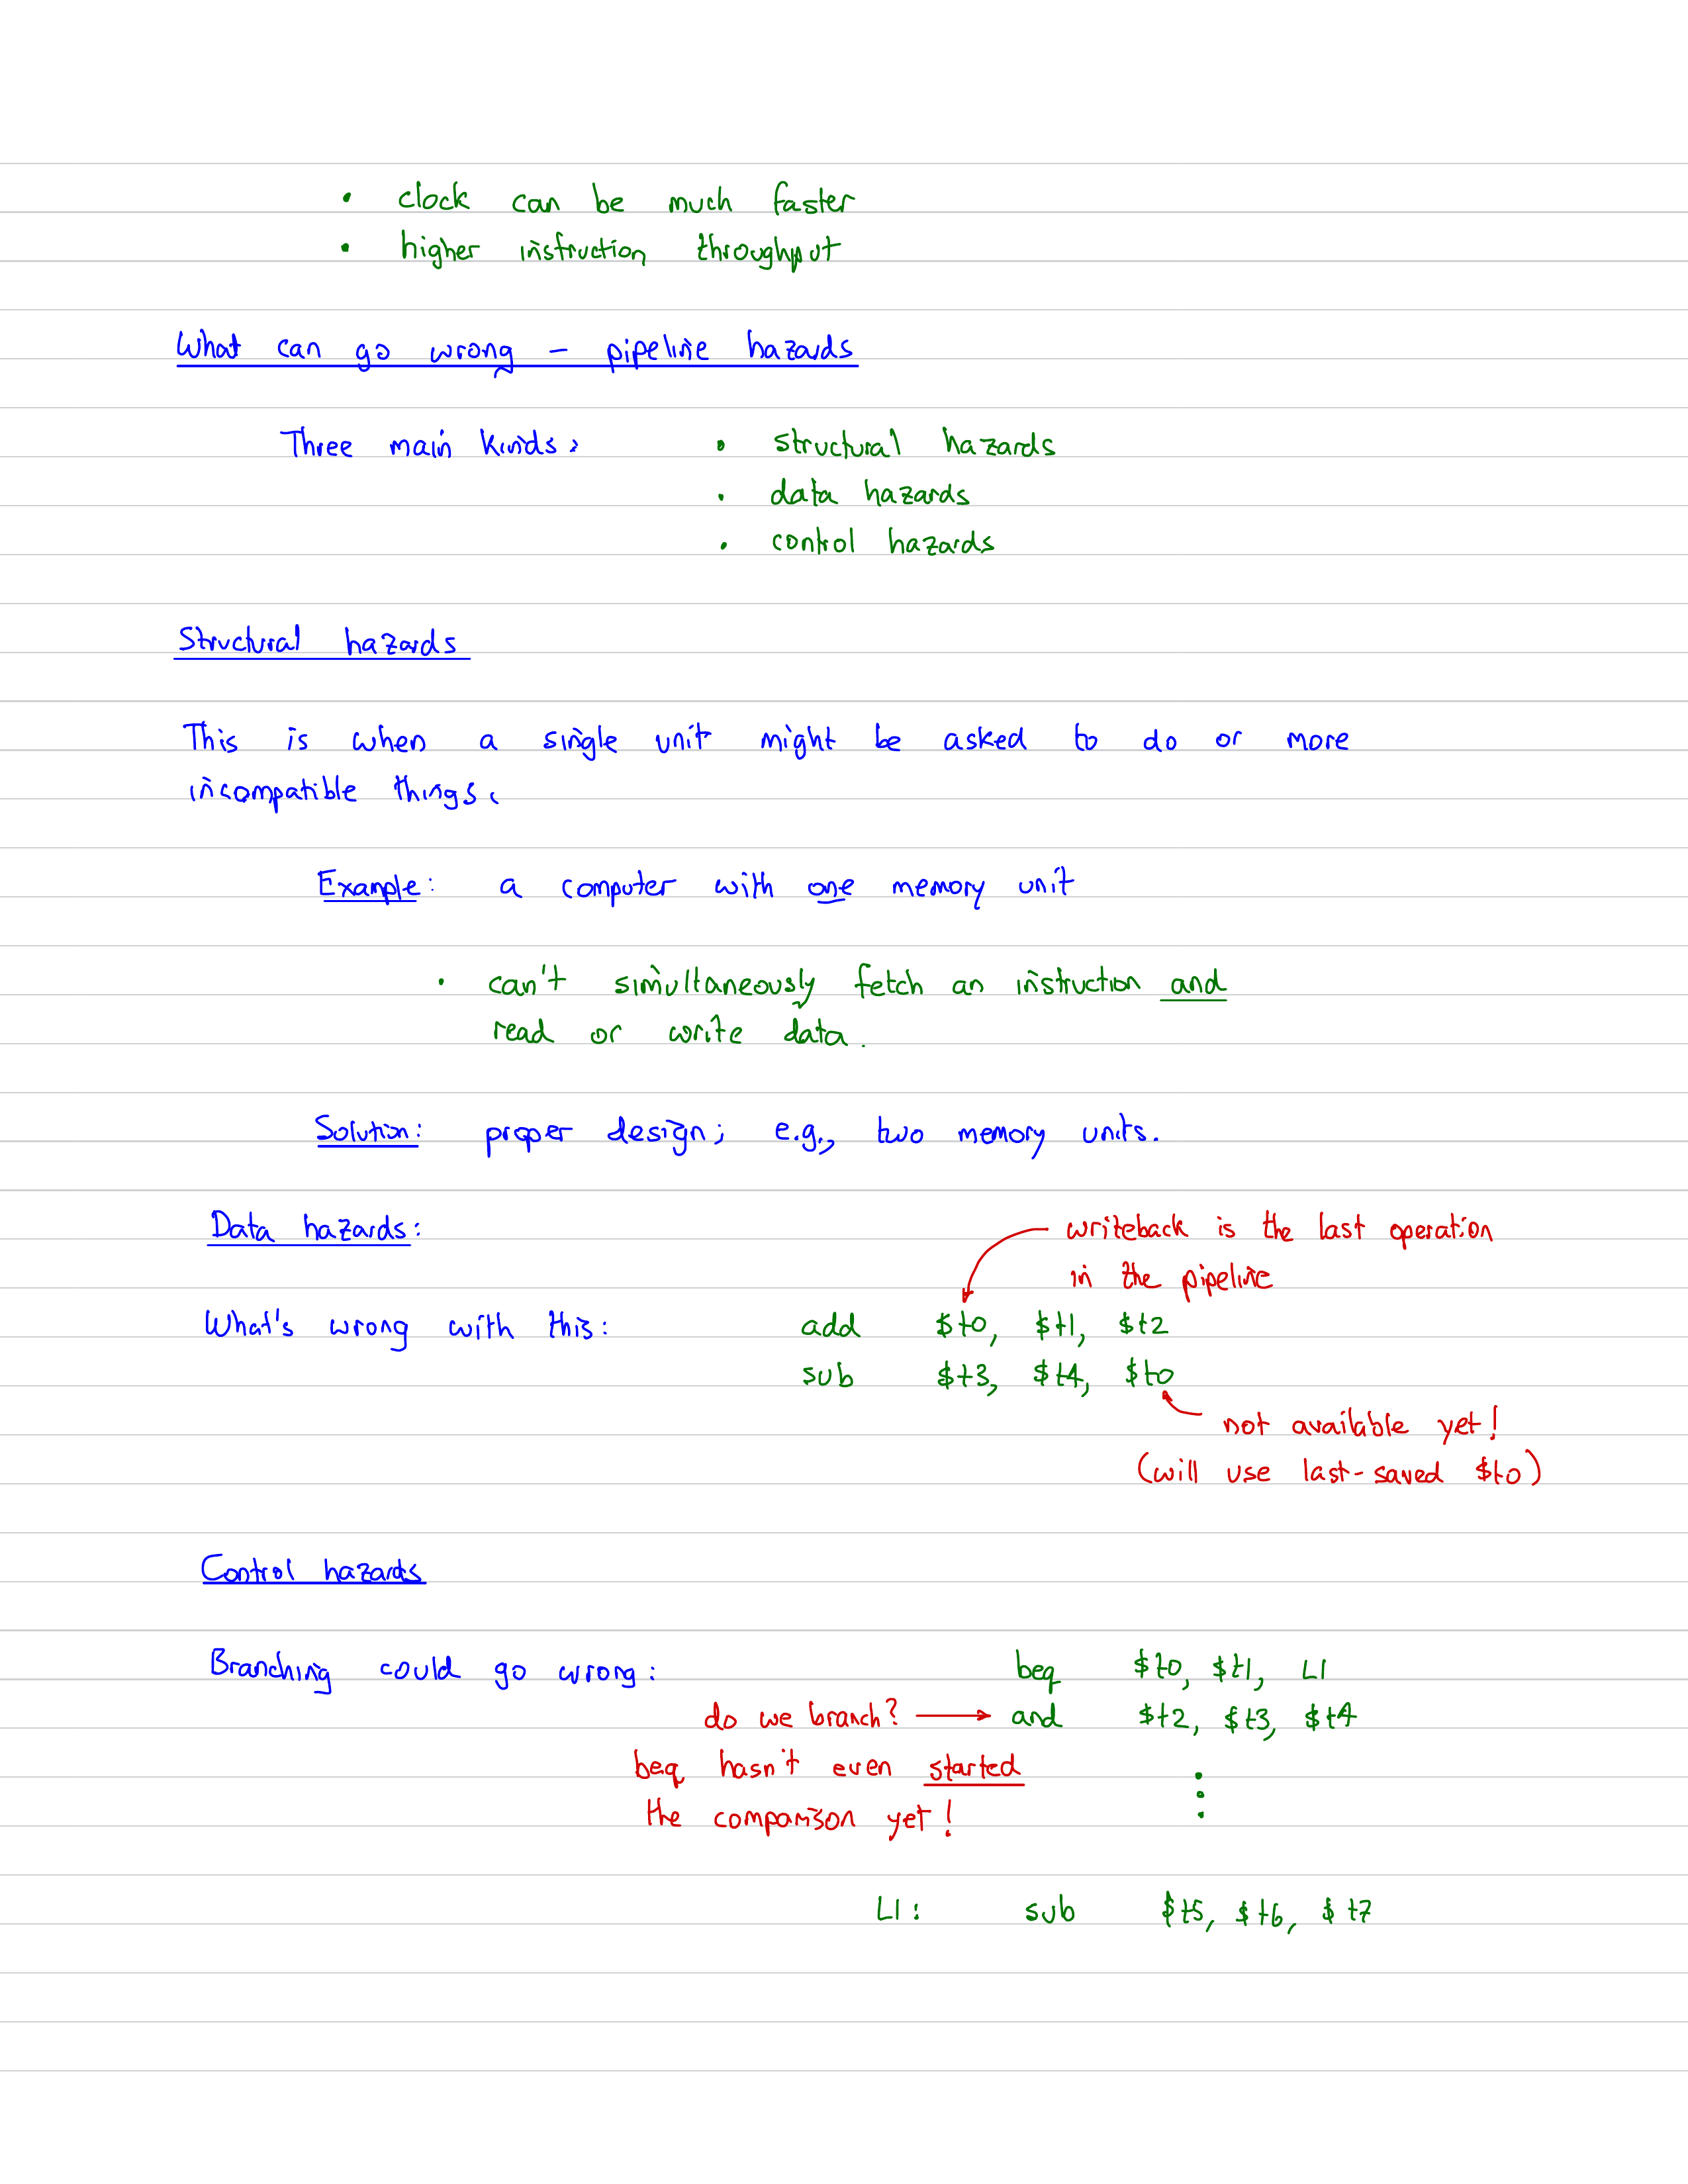 • clock can be much faster
• higher instruction throughput
What can go wrong – pipeline hazards
Three main kinds: • structural hazards
• data hazards
• control hazards
Structural hazards
This is when a single unit might be asked to do or more
incompatible things.
Example: a computer with one memory unit
• can't simultaneously fetch an instruction and
read or write data.
Solution: proper design; e.g., two memory units.
Data hazards: writeback is the last operation
in the pipeline
What's wrong with this: add $t0, $t1, $t2
sub $t3, $t4, $t0
not available yet!
(will use last-saved $t0)
Control hazards
Branching could go wrong: beq $t0, $t1, L1
do we branch? → and $t2, $t3, $t4
beq hasn't even started
the comparison yet!
L1: sub $t5, $t6, $t7